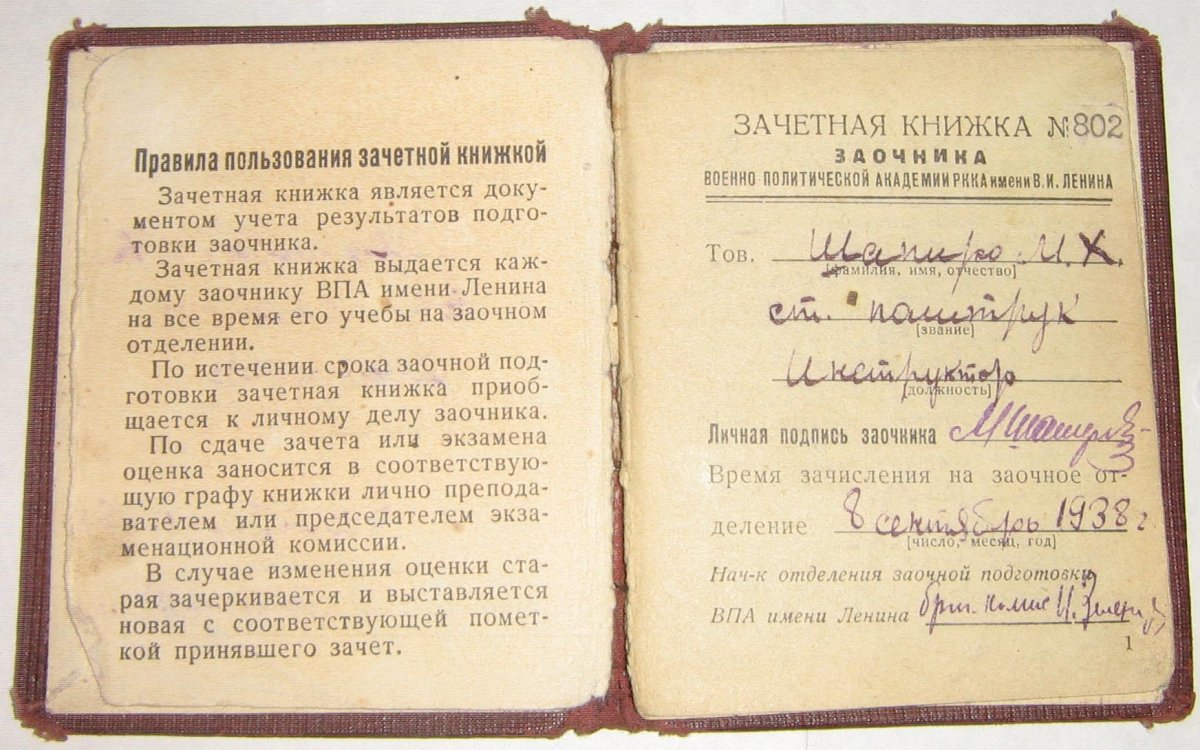 Правила пользования зачетной книжкой
Зачетная книжка является доку-
ментом учета результатов подго-
товки заочника.
Зачетная книжка выдается каж-
дому заочнику ВПА имени Ленина
на все время его учебы на заочном
отделении.
По истечении срока заочной под-
готовки зачетная книжка приоб-
щается к личному делу заочника.
По сдаче зачета или экзамена
оценка заносится в соответствую-
щую графу книжки лично препода-
вателем или председателем экза-
менационной комиссии.
В случае изменения оценки ста-
рая зачеркивается и выставляется
новая с соответствующей помет-
кой принявшего зачет.
ЗАЧЕТНАЯ КНИЖКА №802
ЗАОЧНИКА
ВОЕННО ПОЛИТИЧЕСКОЙ АКАДЕМИИ РККА имени В.И. ЛЕНИНА
Тов. Шапиро М.Х.
[фамилия, имя, отчество]
ст. политрук
[звание]
Инструктор
[должность]
Личная подпись заочника
Время зачисления на заочное от-
деление 8 сентябрь 1938 г
[число, месяц, год]
Нач-к отделения заочной подготовки
ВПА имени Ленина
1